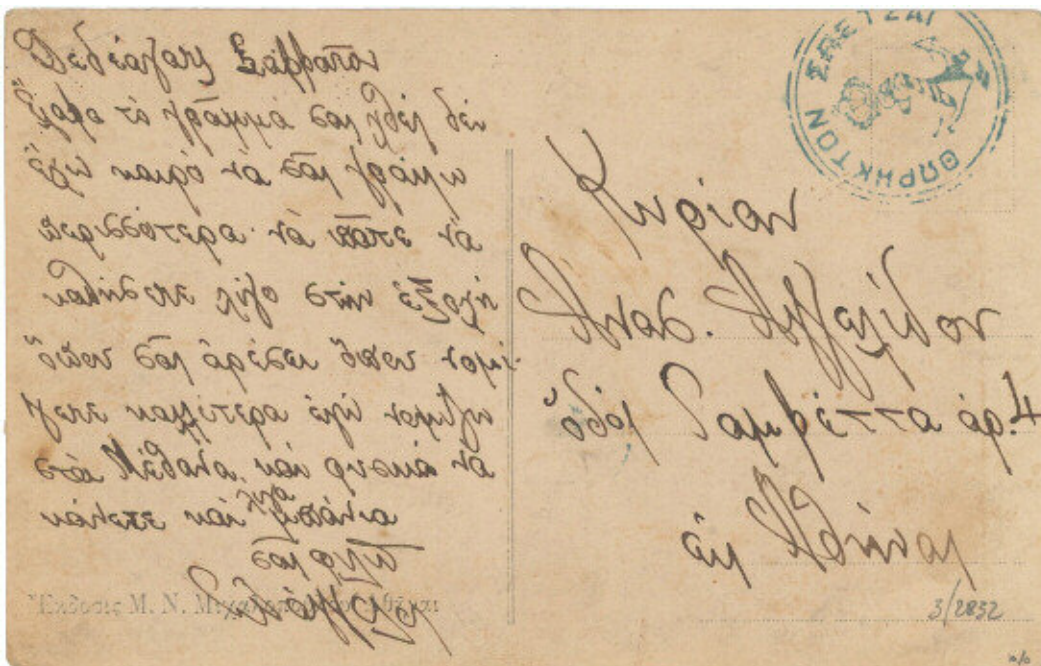 Δεδέαγατς Σάββατον
Ἔλαβα τὸ γράμμά σας χθές δὲν
ἔχω καιρό να σᾶς γράψω
περισσότερα νὰ πᾶτε νὰ
καθήσετε λίγο στὴν ἐξοχὴ
ὅπου σᾶς ἀρέσει ὅπου νομί-
ζετε καλλίτερα ἐγὼ νομίζω
στὰ Μέθανα καὶ φυσικά να
κάνετε καὶ λίγα μπάνια
σᾶς φιλῶ
Ἔκδοσις Μ. Ν.
ΘΩΡΗΚΤΟΝ ΣΠΕΤΣΑΙ
Κυρίαν
Ἀγγελίδου
ὁδός Γαμβέττα ἀρ. 4
εἰς Ἀθήνας
3/2832